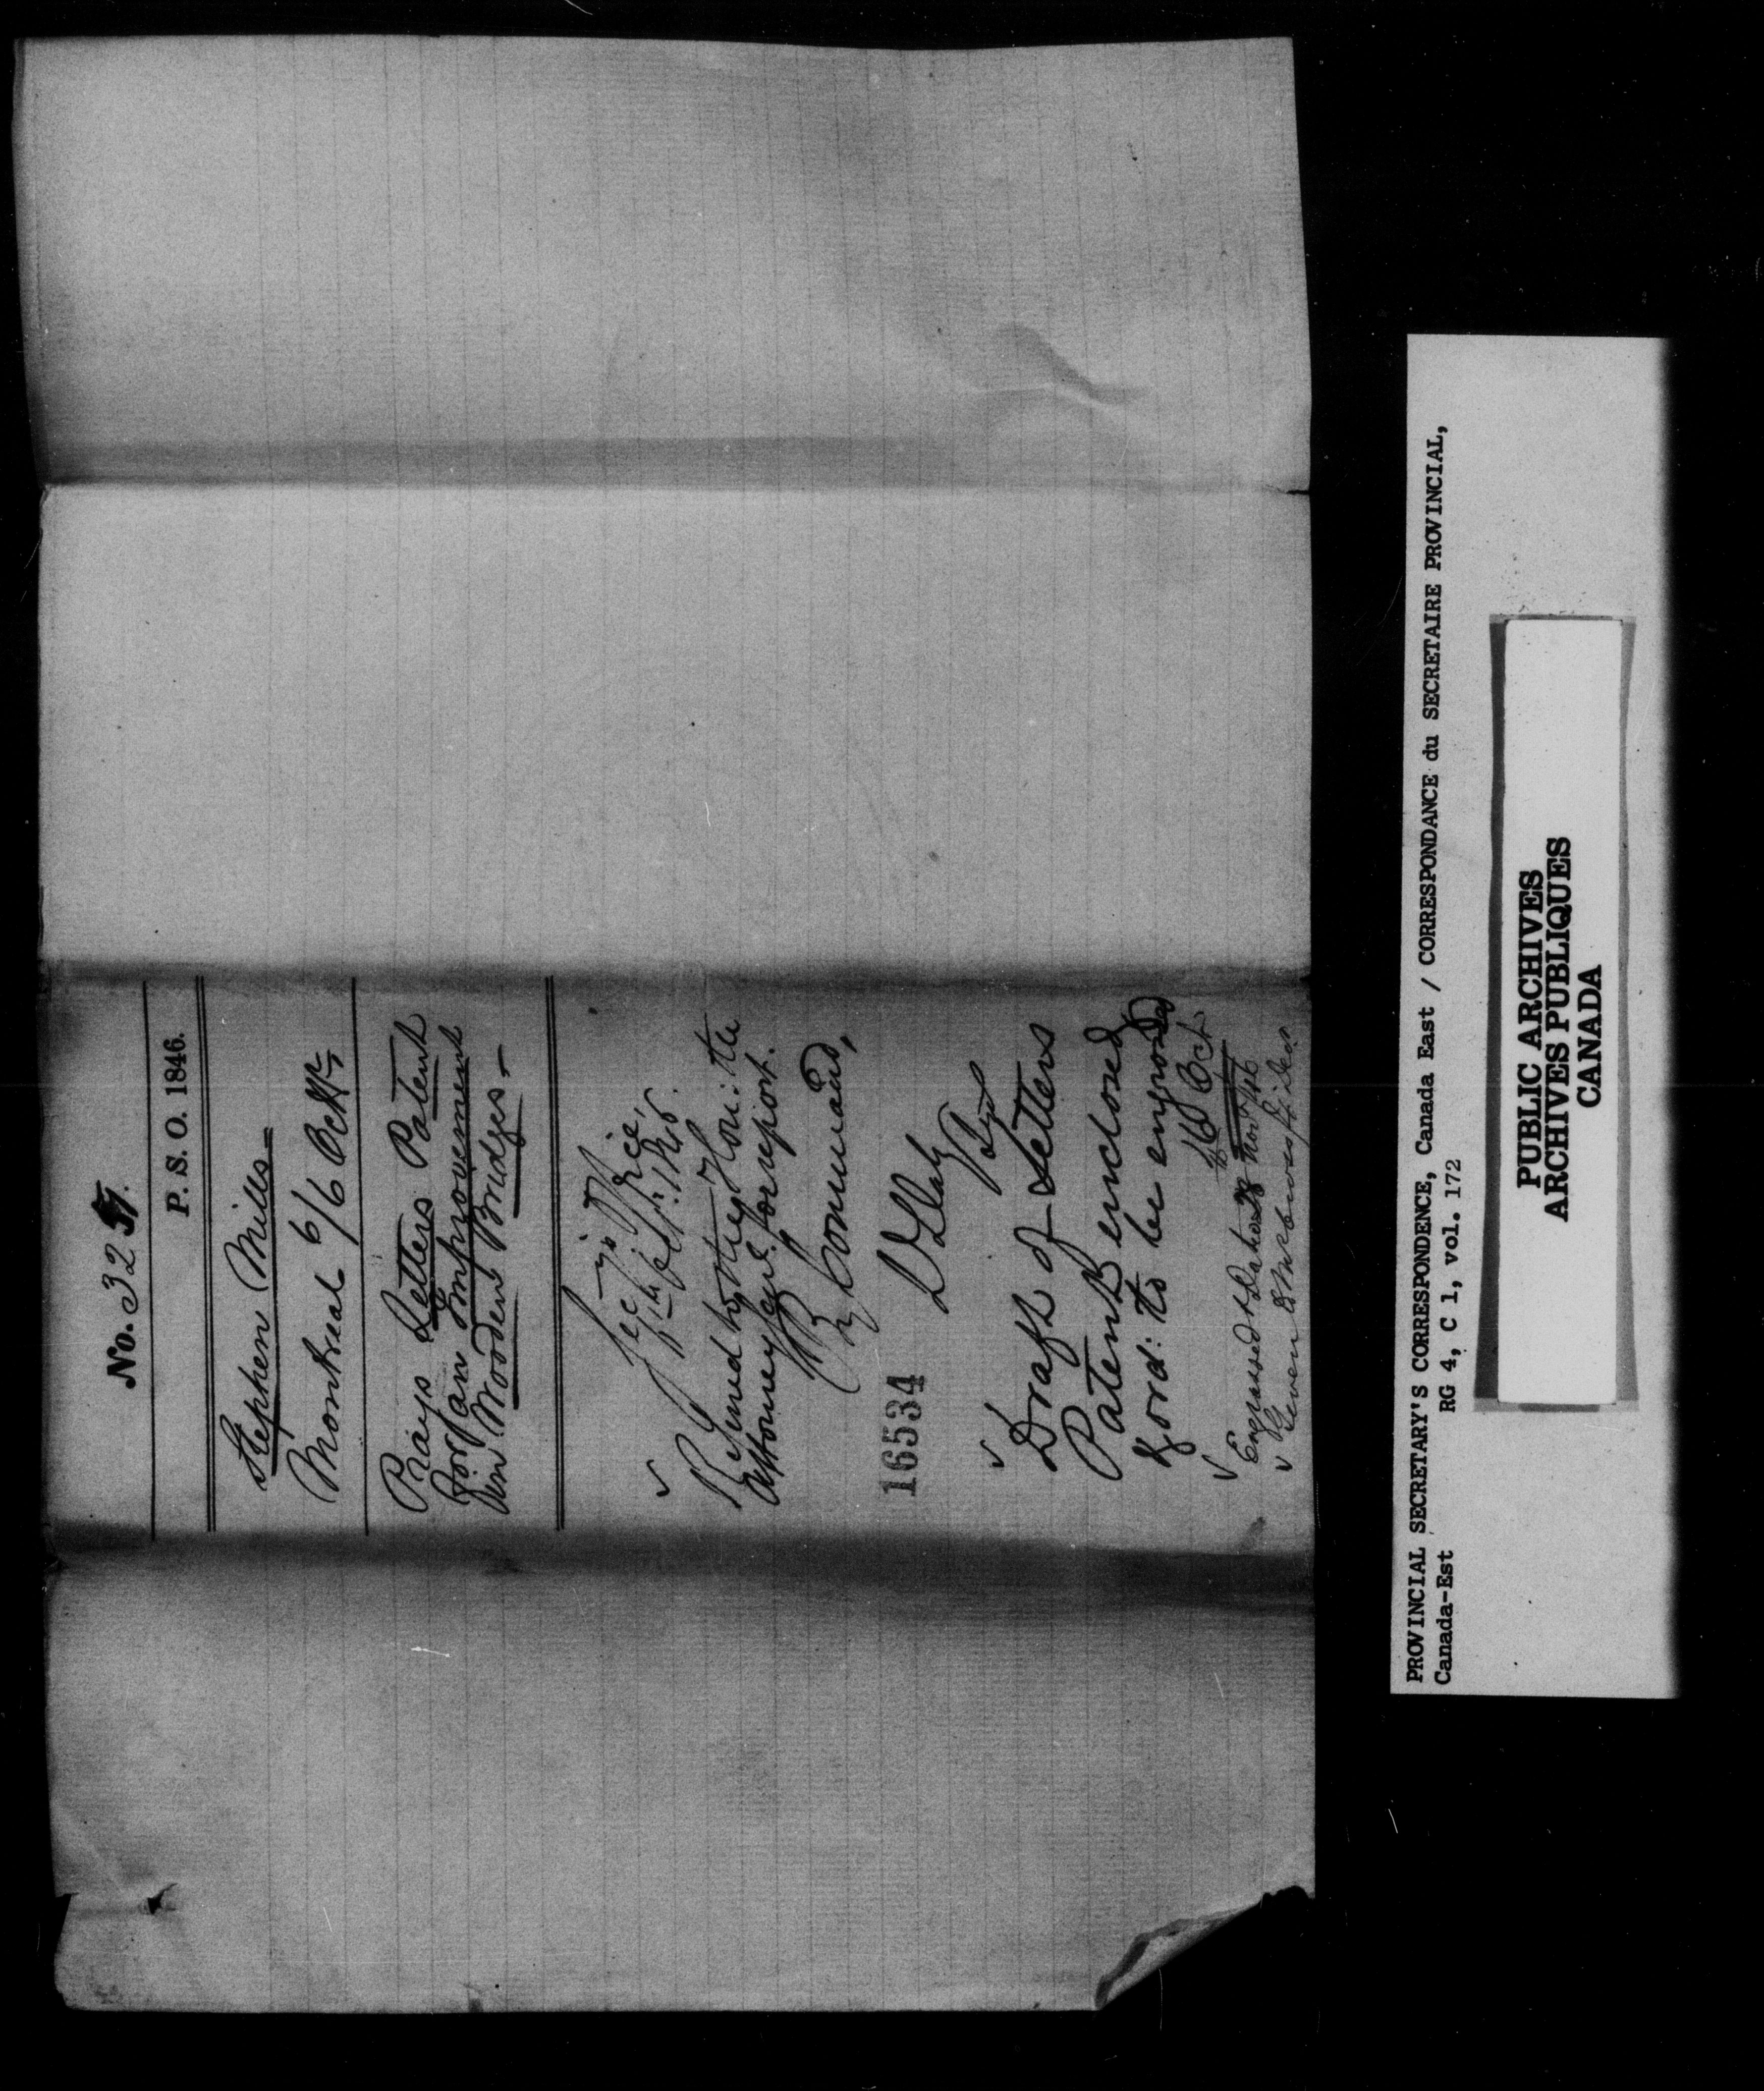 No. 3251.
P. S. O. 1846.
Stephen Mills
Montreal 6/6 Octr
Prays Letters Patent
for an Improvement
in Wooden Bridges
Secy's Office,
7th Octr. 1846.
Refered to the Hon: the
Attorney Genl. for report.
By Command,
D Daly
Secy
16534
Draft of Letters
Patent enclosed
Ford: to be engrossed
16 Oct
Engrossed & Dated Novr/46
Given
PROVINCIAL SECRETARY'S CORRESPONDENCE, Canada East / CORRESPONDANCE du SECRETAIRE PROVINCIAL,
Canada-Est RG 4, C 1, vol. 172
PUBLIC ARCHIVES
ARCHIVES PUBLIQUES
CANADA